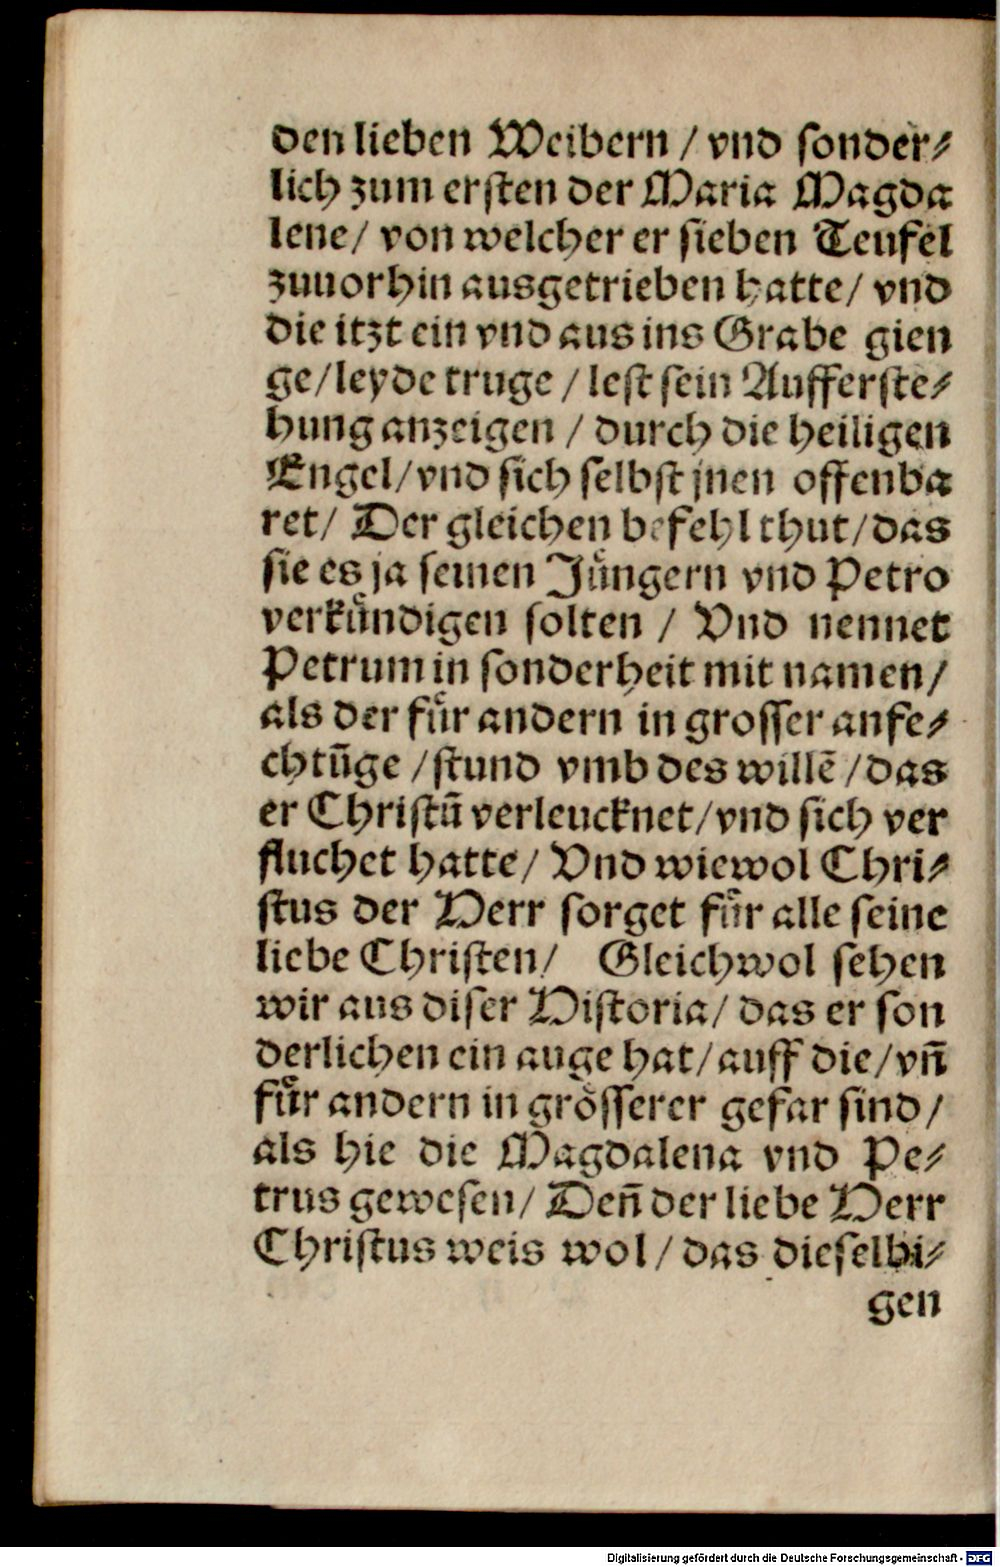 den lieben Weibern / vnd sonder⸗
lich zum ersten der Maria Magda
lene/ von welcher er sieben Teufel
zuuorhin ausgetrieben hatte/ vnd
die itzt ein vnd aus ins Grabe gien
ge/leyde truge / lest sein Aufferste⸗
hung anzeigen / durch die heiligen
Engel/vnd sich selbst jnen offenba
ret/ Der gleichen befehl thut/das
sie es ja seinen Jüngern vnd Petro
verkündigen solten / Vnd nennet
Petrum in sonderheit mit namen/
als der für andern in grosser anfe⸗
chtũge /stund vmb des willẽ /das
er Christũ verleucknet/vnd sich ver
fluchet hatte/ Vnd wiewol Chri⸗
stus der Herr sorget für alle seine
liebe Christen/ Gleichwol sehen
wir aus diser Historia/ das er son
derlichen ein auge hat/auff die/vñ
für andern in grösserer gefar sind/
als hie die Magdalena vnd Pe⸗
trus gewesen/ Deñ der liebe Herr
Christus weis wol/ das dieselbi⸗
gen
Digitalisierung gefördert durch die Deutsche Forschungsgemeinschaft - DFG